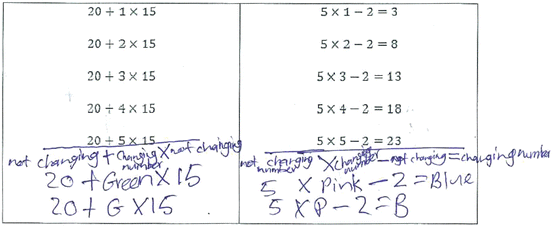 20 + 1 × 15
20 + 2 × 15
20 + 3 × 15
20 + 4 × 15
20 + 5 × 15
not changing + changing number × not changing
20 + Green × 15
20 + G × 15
5 × 1 − 2 = 3
5 × 2 − 2 = 8
5 × 3 − 2 = 13
5 × 4 − 2 = 18
5 × 5 − 2 = 23
not changing number × changing number − not changing = changing number
5 × Pink − 2 = Blue
5 × P − 2 = B